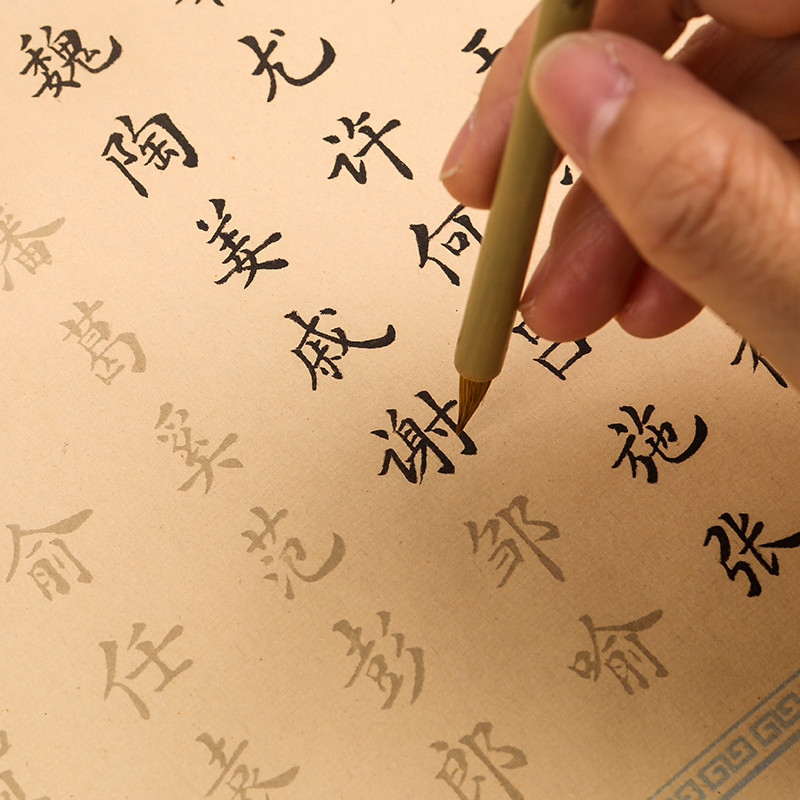 尤许何吕施张
魏陶姜戚谢邹喻
潘葛奚范彭郎
俞任袁